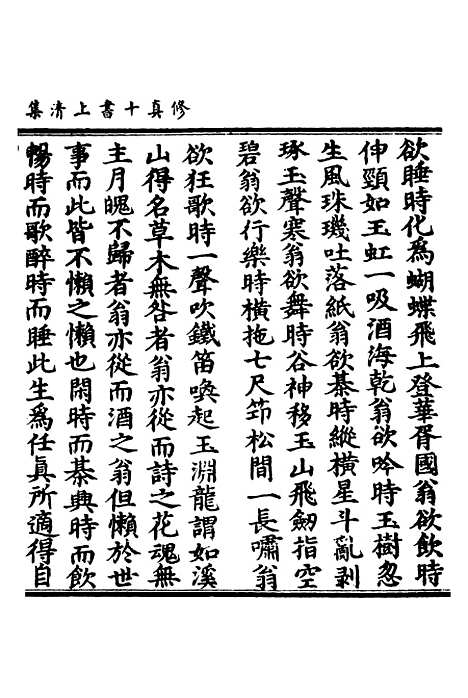 修真十書上清集
欲睡時化為蝴蝶飛上登華胥國翁欲飲時
伸頸如玉虹一吸酒海乾翁欲吟時玉樹忽
生風珠璣吐落紙翁欲棊時縱橫星斗亂剥
琢玉聲寒翁欲舞時谷神移玉山飛劒指空
碧翁欲行樂時橫拖七尺笻松間一長嘯翁
欲狂歌時一聲吹鐵笛喚起玉淵龍謂如溪
山得名草木無咎者翁亦從而詩之花魂無
主月魄不歸者翁亦從而酒之翁但懶於世
事而此皆不懶之懶也閑時而棊興時而飲
暢時而歌醉時而睡此生為任真所適得自